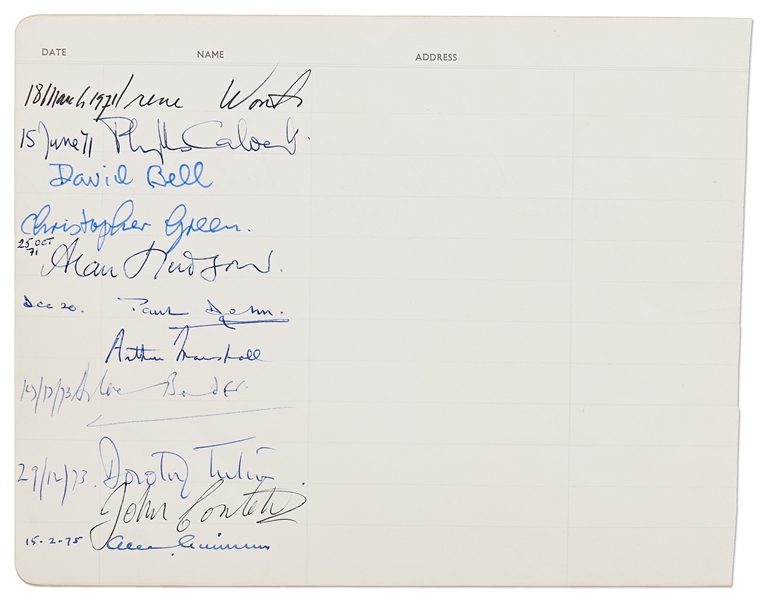 DATE NAME ADDRESS
18/March 1971/Irene Worth
15 June 71 Phyllis Calvert.
David Bell
Christopher Green.
25 OCT
71
Alan Hudson.
Dec 20. Paul Dehn.
Arthur Marshall
/73
29/12/73. Dorothy Tutin.
John Conteh
15-2-75 Alec Guinness